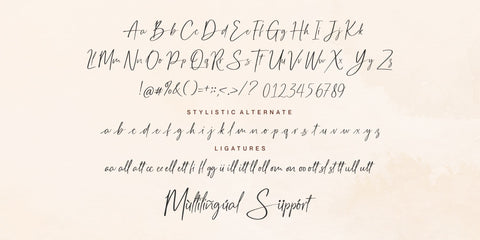 Aa Bb Cc Dd Ee Ff Gg Hh Ii Jj Kk
Ll Mm Nn Oo Pp Qq Rr Ss Tt Uu Vv Ww Xx Yy Zz
!@#%&()=+:;<.>/? 0123456789
STYLISTIC ALTERNATE
a b c d e f g h i j k l m n o p q r s t u v w x y z
LIGATURES
aa all att cc ee ell ett li ll gg ii ill itt ll oll om on oo ott sl st tt ull utt
Multilingual Support